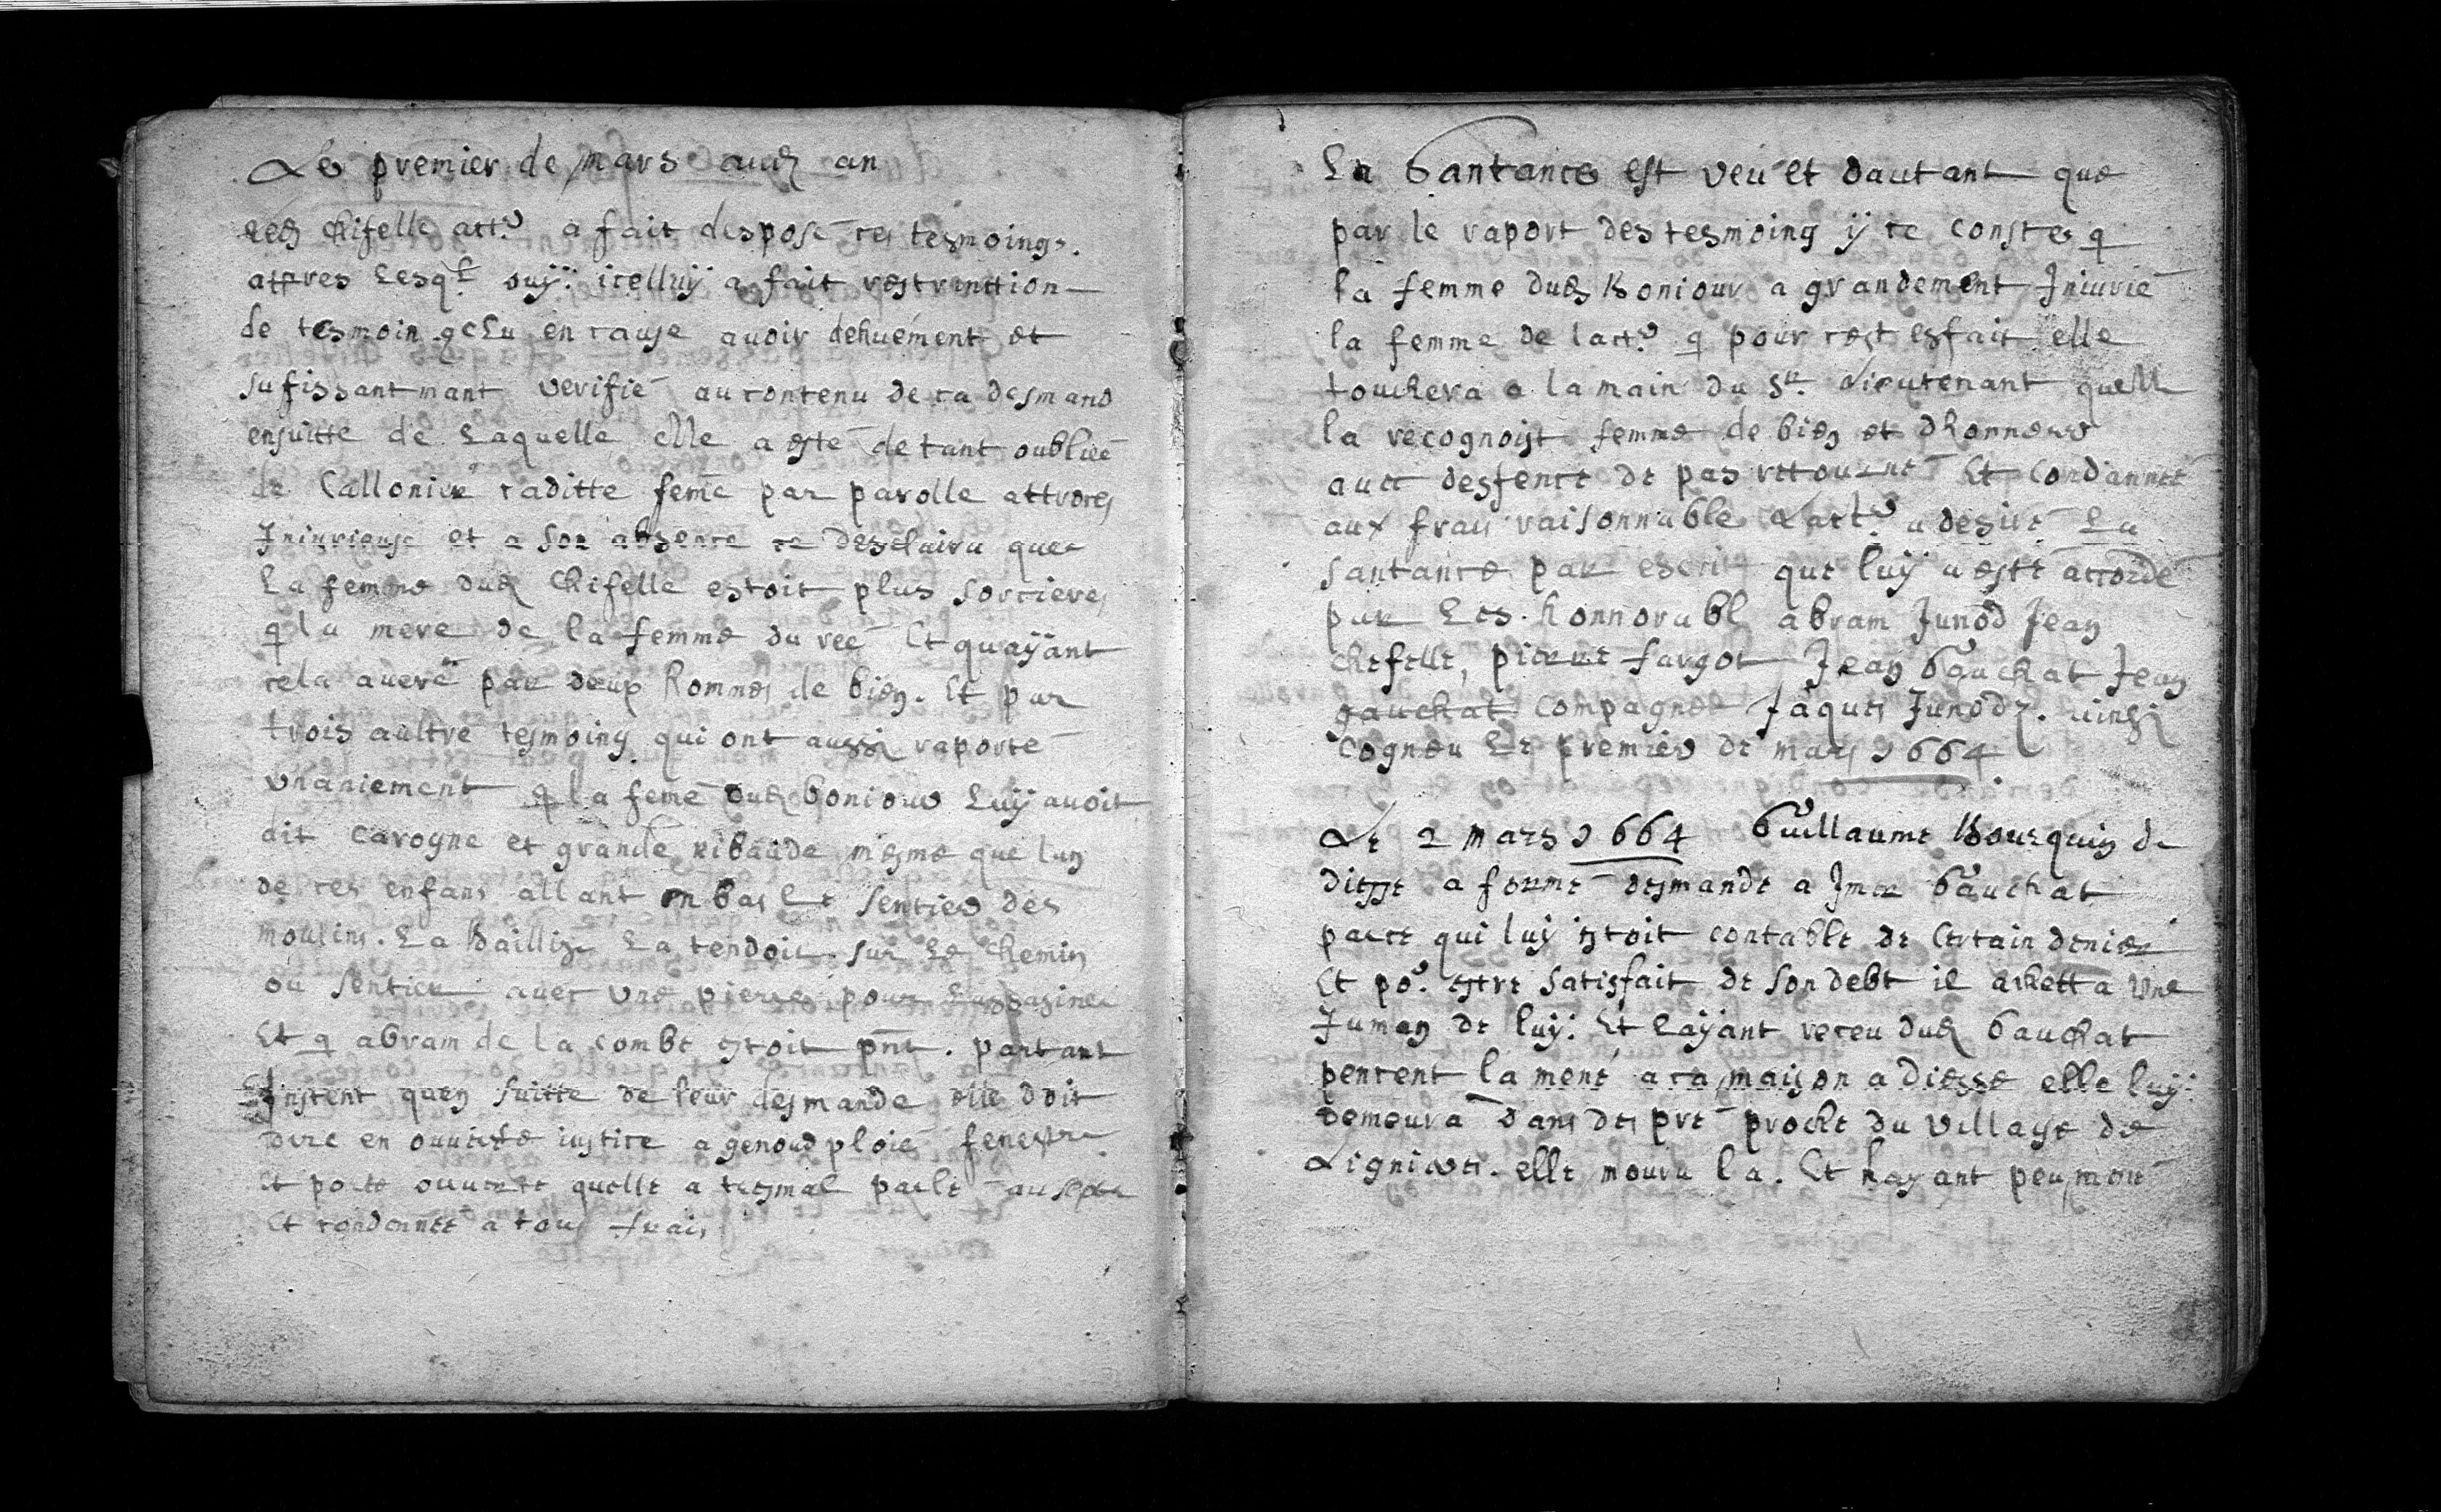 Le premier de mars aud an
led Chifelle actr a fait desposé ces tesmoings.
attres Lesqls ouÿ. icelluÿ a fait restrinttion
de tesmoin gelu en cause avoir dehuément et
sufissantmant verifié au contenu de ca desmand
ensuitte de Laquelle elle a esté de tant oubliee
de Callonier caditte feme par parolle attroces
Iniurieuse et a son absence ce desclaira que
La femme dud Chifelle estoit plus sorciere
q la mere de la femme du reé Et quaÿant
cela averé par deux hommes de bien. Et par
trois aultre tesmoing qui ont aussi raporté
Unaniement q la feme dud boniour Luÿ avoit
dit Carogne et grande ribaude mesme que lun
de ces enfans allant en bas Le sentier des
moulins. La Baillize La tendoit sur Le Chemin
ou sentier avec une pierre pour Lassasiner
Et q abram de la combe estoit pnt. partant
Instent quen suitte de leur desmande elle doit
dire en ouverte iustice a genoud ploié fenestre
Et porte ouverte quelle a mal parlé
Et condannée a tous frais
La Santance est veu et dautant que
par le raport des tesmoing ÿ ce conste q
la femme dud Boniour a grandement Iniurié
la femme de lactr q pour cest esfait elle
touchera a la main du Sr Lieutenant quelle
la recognoist femme de bien et dhonneur
avec desfence de pas retourné Et Condannée
aux frais raisonnable Lactr a desiré La
santance par escrit que luÿ a esté accordé
par Les honnorabl abram Junod Jean
Chifelle, pierre fargot Jean Gauchat Jean
gauchat Compagnet Jaques Junod. ainsi
Cogneu Le premier de mars 1664
Le 2 mars 1664 Guillaume Bourquin de
diesse a formé desmande a Imer Gauchat
parce qui luÿ estoit contable de Certain denier
Et por estre satisfait de son debt il achetta une
Jumen de luÿ. Et Laÿant receu dud Gauchat
pencent la mené a ca maison a diesse elle luÿ
demeura dans des pré proche du village de
Ligniere. elle mouru la. Et hayant peu mené